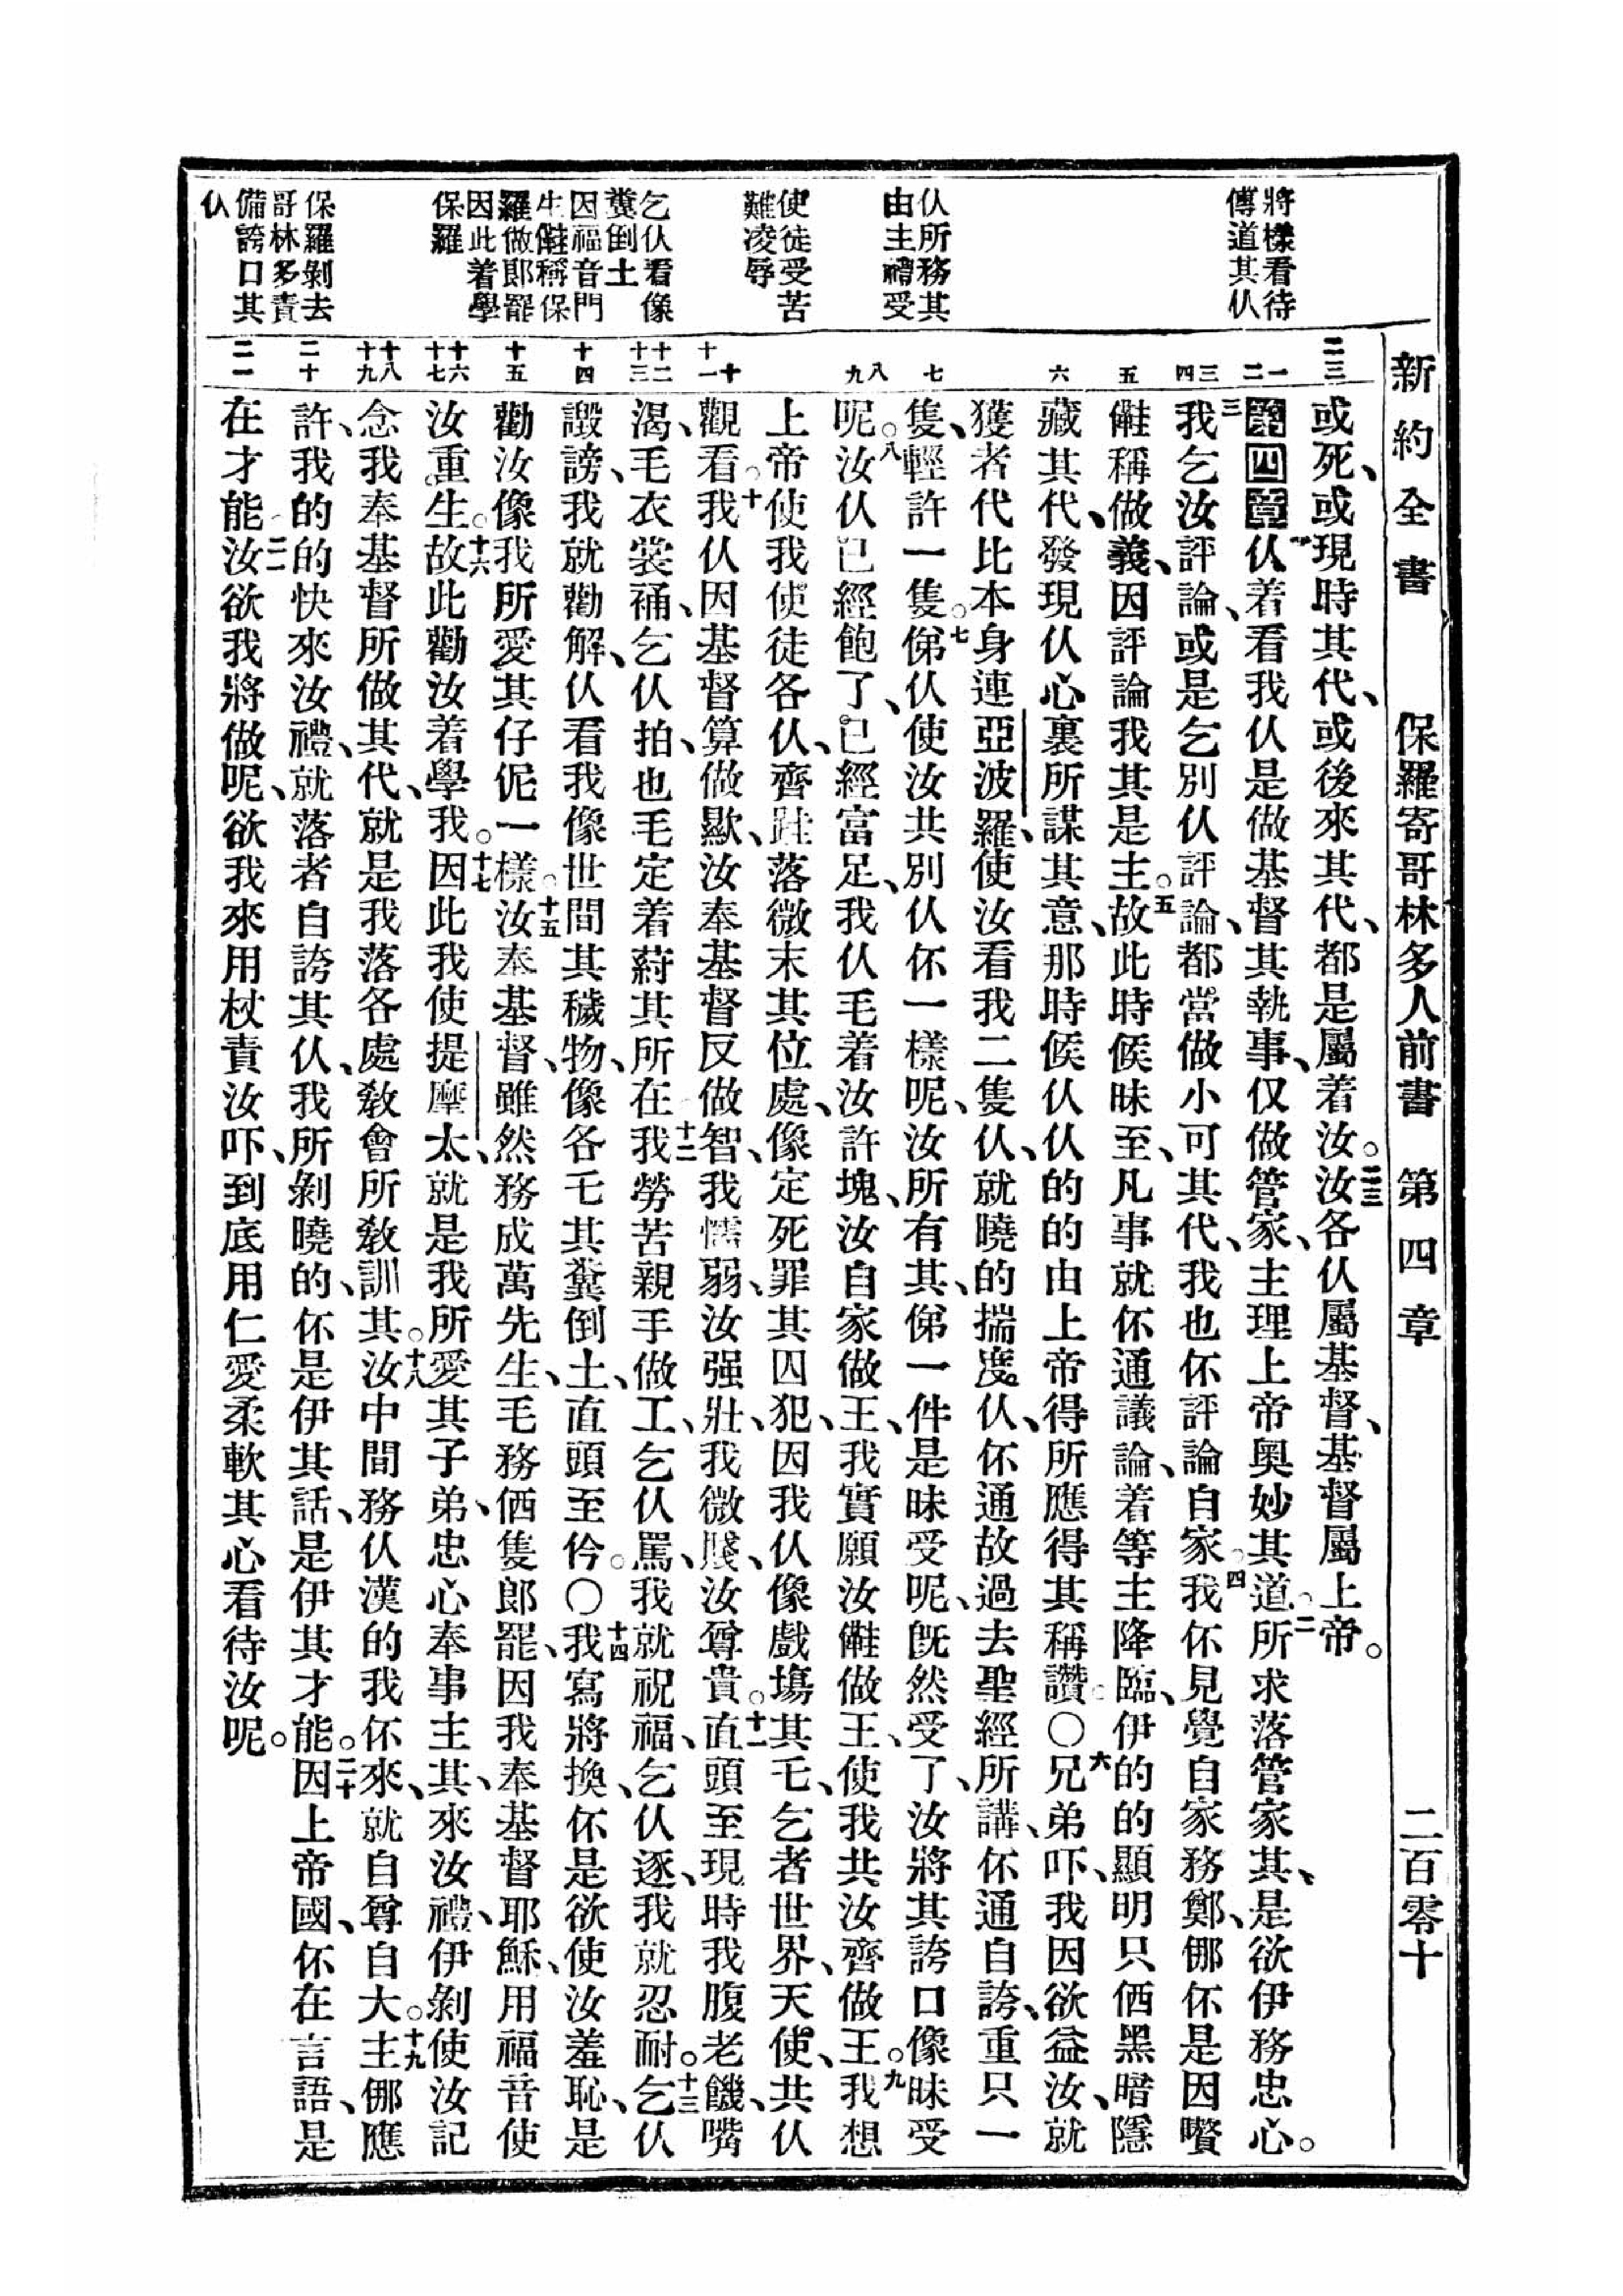 新約全書 保羅寄哥林多人前書 第四章 二百零十
將樣看待
傳道其仈
仈所務其
由主禮受
使徒受苦
難凌辱
乞仈看像
糞倒土
因福音門
生儺稱保
羅做郎罷
因此着學
保羅
保羅剝去
哥林多責
備誇口其
仈
二三
一
二
三
四
五
六
七
八
九
十
十一
十二
十三
十四
十五
十六
十七
十八
十九
二十
二一
或死、或現時其代、或後來其代、都是屬着汝。二三汝各仈屬基督、基督屬上帝。
第四章一仈着看我仈是做基督其執事、仅做管家、主理上帝奥妙其道。二所求落管家其、是欲伊務忠心。
三我乞汝評論、或是乞別仈評論、都當做小可其代、我也伓評論自家。四我伓見覺自家務鄭、㑚伓是因囋
稱做義、因評論我其是主。五故此時候昧至、凡事就伓通議論、着等主降臨、伊的的顯明只㐰黑暗隱
藏其代、發現仈心裏所謀其意、那時候仈仈的的由上帝得所應得其稱讚。〇六兄弟吓、我因欲益汝、就
獲者代比本身連亞波羅、使汝看我二隻仈、就曉的揣度仈、伓通故過去聖經所講、伓通自誇、重只一
隻、輕許一隻。七俤仈使汝共別仈伓一樣呢、汝所有其、俤一件是昧受呢、旣然受了、汝將其誇口像昧受
呢。八汝仈已經飽了、已經富足、我仈毛着汝許塊、汝自家做王、我實願汝做王、使我共汝齊做王。九我想
上帝使我使徒各仈、齊跬落微末其位處、像定死罪其囚犯、因我仈像戲塲其乇、乞者世界、天使、共仈
觀看。十我仈因基督算做歞、汝奉基督反做智、我懦弱、汝强壯、我微賤、汝尊貴。十一直頭至現時我腹老饑、嘴
渴、毛衣裳裲、乞仈拍、也毛定着䓁其所在、十二我勞苦親手做工、乞仈罵、我就祝福、乞仈逐、我就忍耐。十三乞仈
譭謗、我就勸解、仈看我像世間其穢物、像各乇其糞倒土、直頭至仱。〇十四我寫將換、伓是欲使汝羞恥、是
勸汝像我所愛其仔伲一樣。十五汝奉基督、雖然務成萬先生、毛務㐰隻郎罷、因我奉基督耶穌、用福音使
汝重生。十六故此勸汝着學我。十七因此我使提摩太、就是我所愛其子弟、忠心奉事主其、來汝禮、伊剝使汝記
念我奉基督所做其代、就是我落各處敎會所敎訓其。十八汝中間務仈漢的我伓來、就自尊自大。十九主㑚應
許、我的的快來汝禮、就落者自誇其仈、我所剝曉的、伓是伊其話、是伊其才能。二十因上帝國、伓在言語、是
在才能。二一汝欲我將做呢、欲我來用杖責汝吓、到底用仁愛柔軟其心看待汝呢。